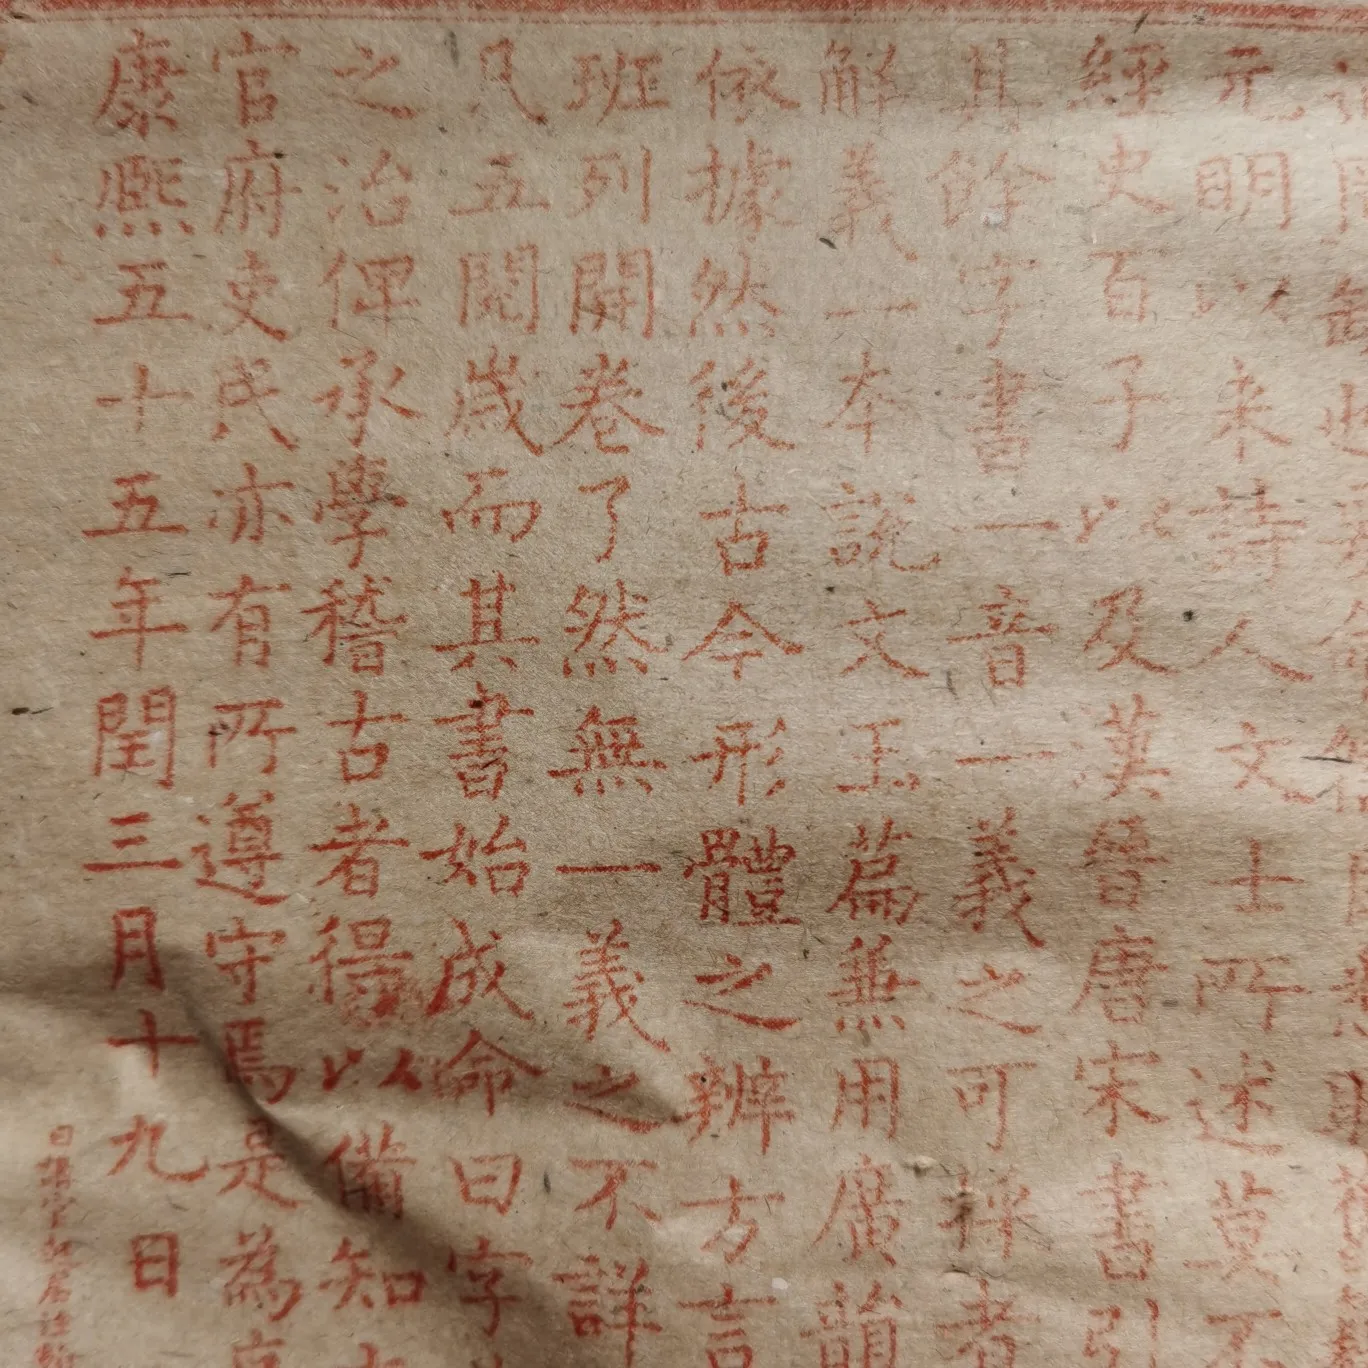 元明以来詩人文士所述莫不
經史百子以及漢晉唐宋書引
其餘字書一音一義之可採者
解義一本説文玉篇兼用廣韻
依據然後古今形體之辨方言
班列開卷了然無一義之不詳
凡五閱歲而其書始成命曰字
之治俾承學稽古者得以備知
官府吏民亦有所遵守焉是為
康熙五十五年閏三月十九日
日講官起居注